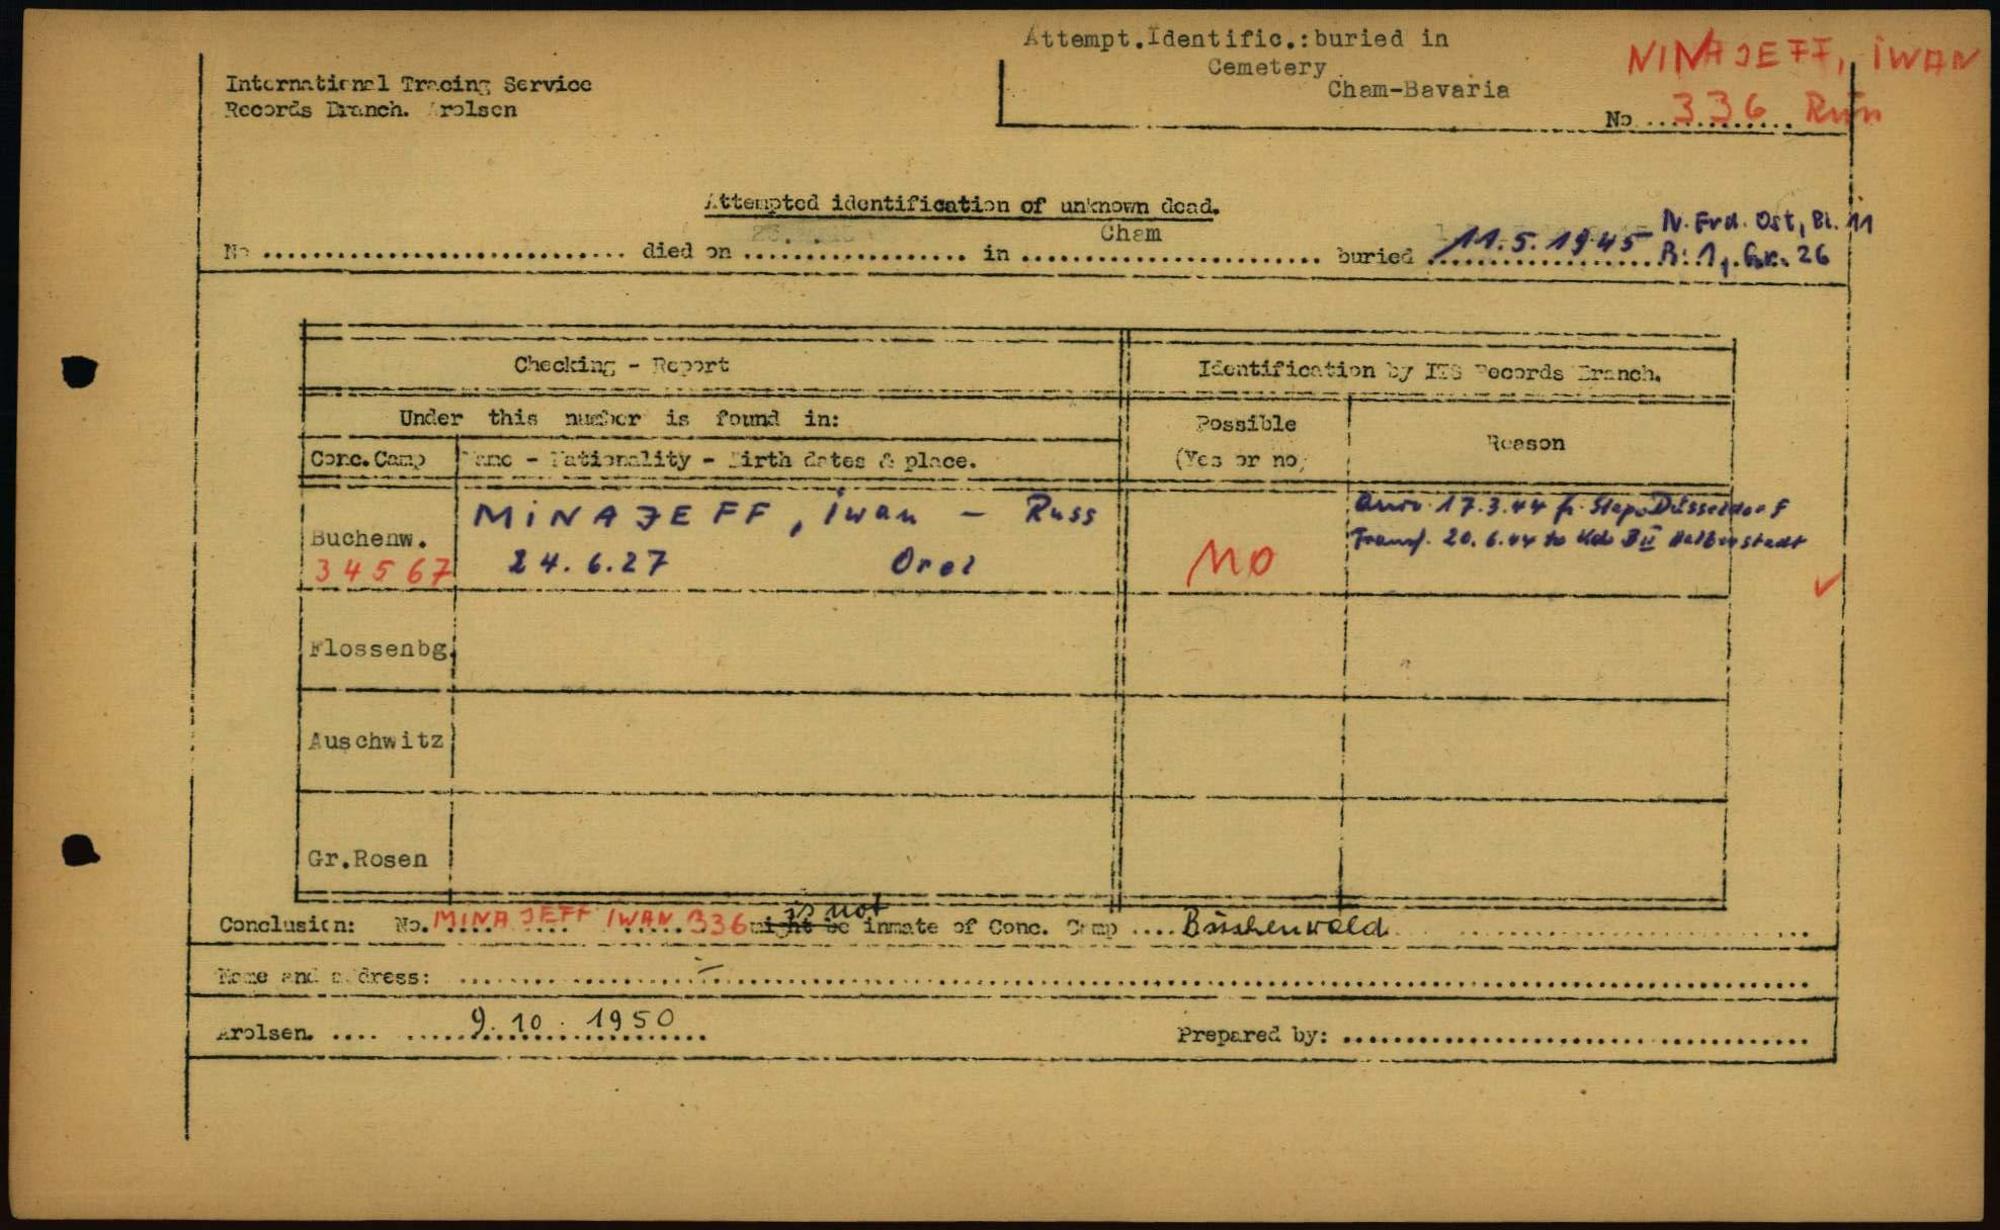 Attempt.Identific.:buried in
Cemetery
Cham-Bavaria
MINAJEFF, iWAN
No ............ 336
International Tracing Service
Records Branch. Arolsen
Attempted identification of unknown dead.
Cham
N. Frd. Ost, Bl. 11
No ............................ died on .................. in ........................ buried 11.5.1945 R: 1, Gr. 26
Checking - Report
Identification by ITS Records Branch.
Under this number is found in:
Possible
(Yes or no)
Reason
Conc.Camp
Name - Nationality - Birth dates & place.
Buchenw.
34567
MiNAJEFF, iwan - Russ
24.6.27 Orel
NO
17.3.44 fr. Stapo Düsseldorf
Transf. 20.6.44 to Kdo BII Halberstadt
Flossenbg.
Auschwitz
Gr.Rosen
is not
Conclusion: No. MINAJEFF IWAN 336 might be inmate of Conc. Camp .... Buchenwald
Name and address: ........................
Arolsen. .... 9. 10. 1950
Prepared by: ........................